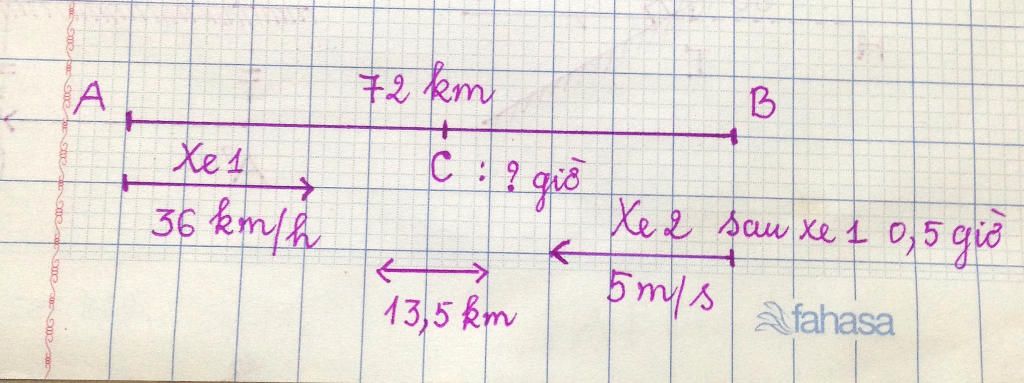 72 km
A B
Xe 1
C : ? giờ
36 km/h
Xe 2 sau xe 1 0,5 giờ
5 m/s
13,5 km
fahasa